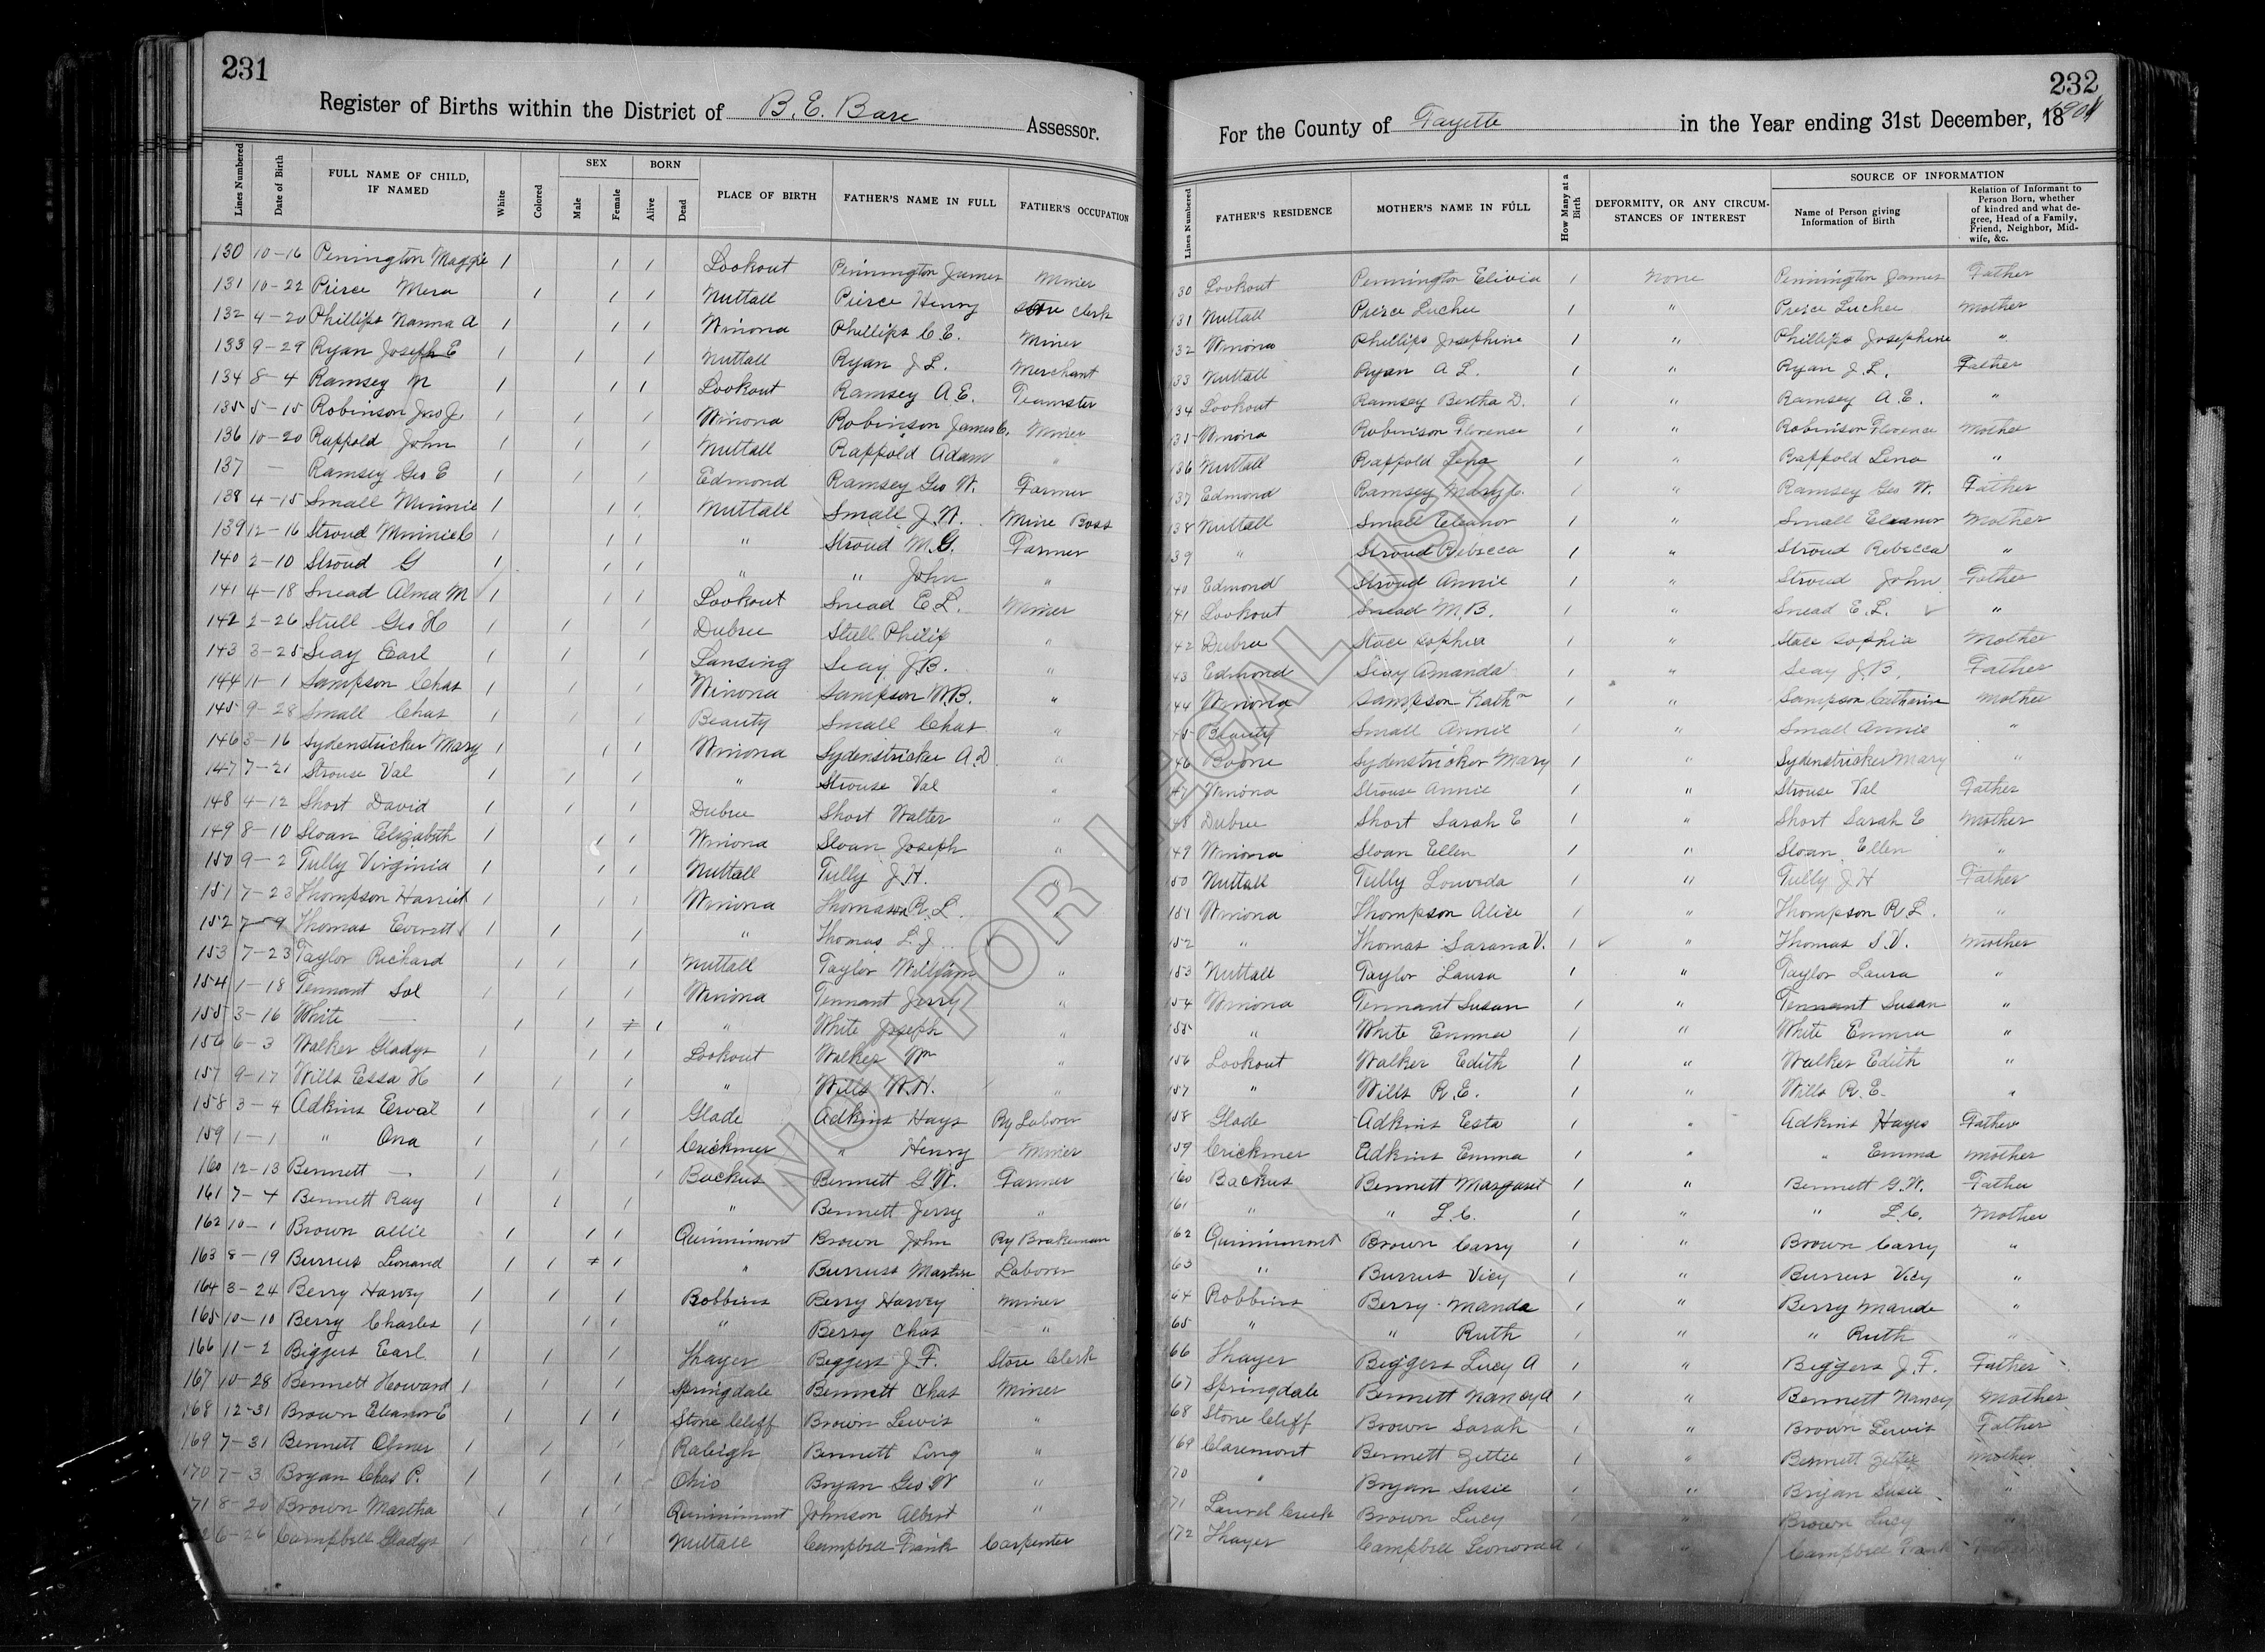 231
Register of Births within the District of B. E. Bare Assessor.
Lines Numbered | Date of Birth | FULL NAME OF CHILD, IF NAMED | White | Colored | SEX Male | Female | BORN Alive | Dead | PLACE OF BIRTH | FATHER'S NAME IN FULL | FATHER'S OCCUPATION
130 10-16 Penington Maggie 1 1 1 Lookout Pennington James Miner
131 10-22 Pierce Mera 1 1 1 Nuttall Pierce Henry Store Clerk
132 4-20 Phillips Nanna A 1 1 1 Winona Phillips C. E. Miner
133 9-29 Ryan Joseph E 1 1 1 Nuttall Ryan J. L. Merchant
134 8-4 Ramsey M 1 1 1 Lookout Ramsey A. E. Teamster
135 5-15 Robinson Jno J. 1 1 1 Winona Robinson James C. Miner
136 10-20 Rappold John 1 1 1 Nuttall Rappold Adam "
137 — Ramsey Geo E 1 1 1 Edmond Ramsey Geo W. Farmer
138 4-15 Small Minnie 1 1 1 Nuttall Small J. W. Mine Boss
139 12-16 Stroud Minnie C 1 1 1 " Stroud M. G. Farmer
140 2-10 Stroud G 1 1 1 " " John "
141 4-18 Snead Alma M 1 1 1 Lookout Snead E. L. Miner
142 2-26 Stull Geo H 1 1 1 Dubree Stull Philip "
143 3-25 Seay Earl 1 1 1 Lansing Seay J. B. "
144 11-1 Sampson Chas 1 1 1 Winona Sampson W. B. "
145 9-28 Small Chas 1 1 1 Beauty Small Chas "
146 3-16 Sydenstricker Mary 1 1 1 Winona Sydenstricker A. D. "
147 7-21 Strouse Val 1 1 1 " Strouse Val "
148 4-12 Short David 1 1 1 Dubree Short Walter "
149 8-10 Sloan Elizabeth 1 1 1 Winona Sloan Joseph "
150 9-2 Tully Virginia 1 1 1 Nuttall Tully J. H. "
151 7-23 Thompson Harriet 1 1 1 Winona R. L. "
152 7-9 Thomas Everett 1 1 1 " Thomas L. J. "
153 7-23 Taylor Richard 1 1 1 Nuttall Taylor William "
154 1-18 Tennant Sol 1 1 1 Winona Tennant Jerry "
155 3-16 White — 1 1 1 " White Joseph "
156 6-3 Walker Gladys 1 1 1 Lookout Walker Wm "
157 9-17 Wills Essa H 1 1 1 " Wills W. H. "
158 3-4 Adkins 1 1 1 Glade Adkins Hays Ry Laborer
159 1-1 " Ona 1 1 1 Crickmer " Henry Miner
160 12-13 Bennett — 1 1 1 Backus Bennett G. W. Farmer
161 7-4 Bennett Ray 1 1 1 " Bennett Jerry "
162 10-1 Brown Allie 1 1 1 Quinnimont Brown John Ry Brakeman
163 8-19 Burrus Leonard 1 1 1 " Burruss Martin Laborer
164 3-24 Berry Harvey 1 1 1 Robbins Berry Harvey Miner
165 10-10 Berry Charles 1 1 1 " Berry Chas "
166 11-2 Biggers Earl 1 1 1 Thayer Beggers J. F. Store Clerk
167 10-28 Bennett Howard 1 1 1 Springdale Bennett Chas Miner
168 12-31 Brown Eleanor E 1 1 1 Stone Cliff Brown Lewis "
169 7-31 Bennett Obmer 1 1 1 Raleigh Bennett Long "
170 7-3 Bryan Chas P. 1 1 1 Ohio Bryan Geo W "
71 8-20 Brown Martha 1 1 1 Quinnimont Johnson Albert "
6-26 Campbell Gladys 1 1 1 Nuttall Campbell Frank Carpenter
232
For the County of Fayette in the Year ending 31st December, 18 1901
Lines Numbered | FATHER'S RESIDENCE | MOTHER'S NAME IN FULL | How Many at a Birth | DEFORMITY, OR ANY CIRCUMSTANCES OF INTEREST | SOURCE OF INFORMATION | Name of Person giving Information of Birth | Relation of Informant to Person Born, whether of kindred and what degree, Head of a Family, Friend, Neighbor, Midwife, &c.
30 Lookout Pennington Elivia 1 None Pennington James Father
131 Nuttall Pierce Luchee 1 " Pierce Luchee Mother
132 Winona Phillips Josephine 1 " Phillips Josephine "
33 Nuttall Ryan A L. 1 " Ryan J. L. Father
134 Lookout Ramsey Bertha D. 1 " Ramsey A. E. "
135 Winona Robinson Florence 1 " Robinson Florence Mother
136 Nuttall Rappold Lena 1 " Rappold Lena "
137 Edmond Ramsey Mary C. 1 " Ramsey Geo W. Father
138 Nuttall Small Eleanor 1 " Small Eleanor Mother
39 " Stroud Rebecca 1 " Stroud Rebecca "
140 Edmond Stroud Annie 1 " Stroud John Father
141 Lookout Snead M. B. 1 " Snead E. L. "
142 Dubree Stace Sophia 1 " Stace Sophia Mother
43 Edmond Seay Amanda 1 " Seay J. B. Father
144 Winona Sampson Kathn 1 " Sampson Catharine Mother
45 Beauty Small Annie 1 " Small Annie "
46 Boone Sydenstricker Mary 1 " Sydenstricker Mary "
47 Winona Strouse Annie 1 " Strouse Val Father
48 Dubree Short Sarah E 1 " Short Sarah E Mother
49 Winona Sloan Ellen 1 " Sloan Ellen "
150 Nuttall Tully Louveda 1 " Tully J H Father
151 Winona Thompson Alice 1 " Thompson R. L. "
152 " Thomas Sarana V. 1 " Thomas S. V. Mother
153 Nuttall Taylor Laura 1 " Taylor Laura "
154 Winona Tennant Susan 1 " Tennant Susan "
155 " White Emma 1 " White Emma "
156 Lookout Walker Edith 1 " Walker Edith "
157 " Wills R. E. 1 " Wills R. E. "
158 Glade Adkins Esta 1 " Adkins Hayes Father
159 Crickmer Adkins Emma 1 " " Emma Mother
160 Backus Bennett Margaret 1 " Bennett G. W. Father
161 " " L. C. 1 " " L. C. Mother
162 Quinnimont Brown Carry 1 " Brown Carry "
63 " Burrus Vicy 1 " Burrus Vicy "
64 Robbins Berry Manda 1 " Berry Mande "
65 " " Ruth 1 " " Ruth "
66 Thayer Biggers Lucy A 1 " Biggers J. F. Father
67 Springdale Bennett Nancy A 1 " Bennett Nancy Mother
68 Stone Cliff Brown Sarah 1 " Brown Lewis Father
169 Claremont Bennett Zettee 1 " Bennett Mother
170 " Bryan Susie 1 " Bryan Susie "
71 Laurel Creek Brown Lucy 1 " Brown Lucy "
172 Thayer Campbell Leonora A 1 " Campbell Frank
NOT FOR LEGAL USE